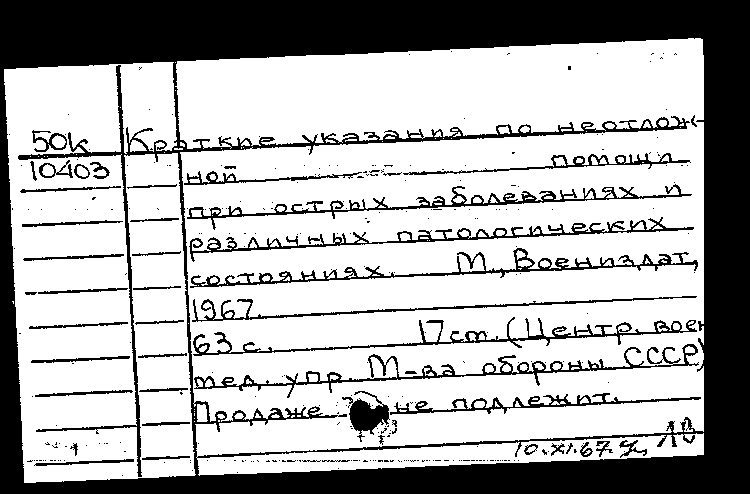 50к Краткие указания по неотлож-
10403 ной помощи
при острых заболеваниях и
различных патологических
состояниях. М., Воениздат,
1967.
63 с. 17 см. (Центр. воен
мед. упр. М-ва обороны СССР)
Продаже не подлежит.
10.XI.67.